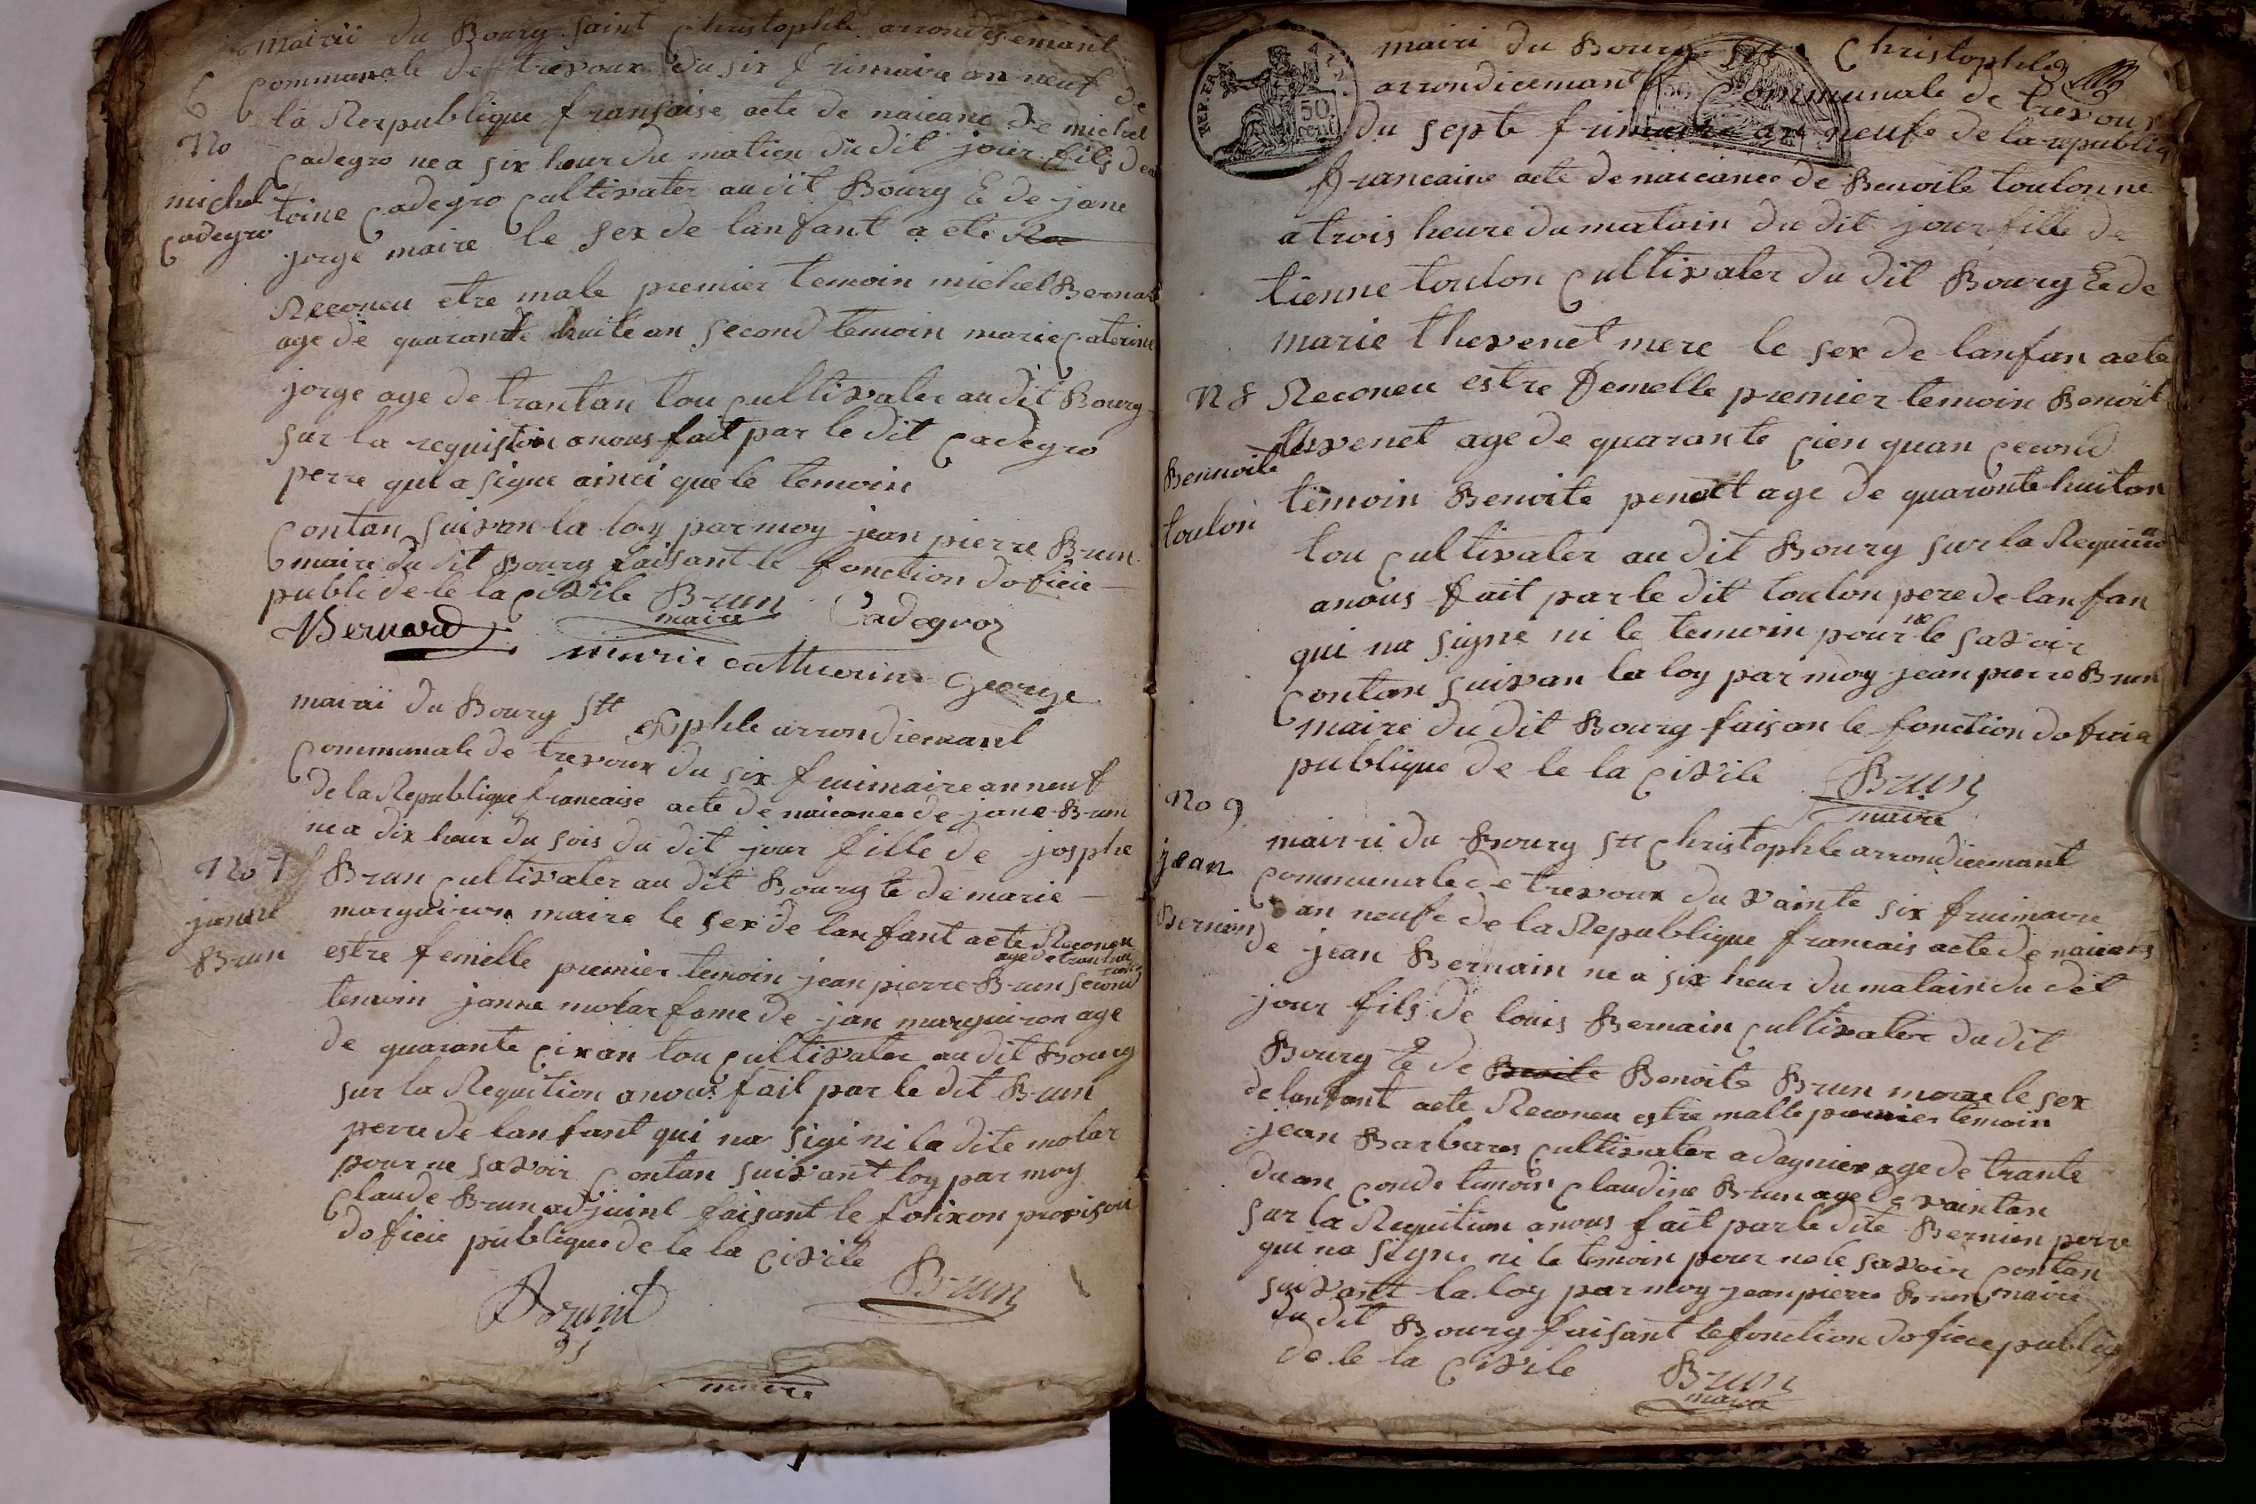 Mairii du Bourg saint Christophle arrondisemant
Communale de trevoux du six frimaire an neuf de
la Respublique fransaise acte de naicanc de michel
Cadegro ne a six heur du matien du dit jour fils dan
toine Cadegro Cultivater audit Bourg Et de jane
jorge maire le sex de lanfant a ete Re
Reconeu etre male premier temoin michel Bernard
age de quarante huite an second temoin marie Caterine
jorge age de trantan tou Cultivater au dit Bourg
sur la requistion anous fait par le dit Cadegro
perre qui a signe ainci que le temoin
Contan suivan la loy par moy jean pierre Brun
maire du dit Bourg faisant le fonction doficie
publi de le la Civile Brun Cadegroz
maire
Bernard
marie catherine George
6
No
michel
Cadegro
mairii du Bourg stt Xpphle arrondiemant
Communale de trevoux du six frimaire an neuf
de la Republique francaise acte de naicance de jane Brun
ne a dix heur du sois du dit jour fille de josphe
Brun Cultivater au dit Bourg Et de marie
marguiron maire le sex de lanfant aete Reconeu
estre femelle premier temoin jean pierre Brun age de trantan second
temoin janne molar fame de jan marguiron age
de quarante Cixan tou Cultivater au dit Bourg
sur la Requition anous fait par le dit Brun
perre de lanfant qui na sigi ni la dite molar
pour ne savoir Contan suivant loy par moy
Claude Brun adjuint faisant le provisoi
doficie publique de le la Civile
No 7
janne
Brun
Brun
maire
mairi du Bourg stt Christophle
arrondicemant Communale de trevoux
du septe frimaire an neufe de la republiq
francaise acte de naicance de Benoite toulon ne
a trois heure du matain du dit jour fille de
tienne toulon Cultivater du dit Bourg Et de
marie thevenet mere le sex de lanfan aete
Reconeu estre femelle premier temoin Benoit
thevenet age de quarante Cien quan Cecond
temoin Benoite penet age de quarante huitan
tou Cultivater au dit Bourg sur la Requition
anous fait par le dit toulon pere de lanfan
qui na signe ni le temoin pour ne le savoir
Contan suivan la loy par moy jean pierre Brun
maire du dit Bourg faisan le fonction doficie
publique de le la Civile Brun
maire
N 8
Bennoite
toulon
REP. FRA.
50
cent.
No 9
jean
Bernin
mairii du Bourg stt Christophle arrondicemant
Communale de trevoux du vainte six frimaire
an neufe de la Republique francais acte de naicans
de jean Bernain ne a six heur du matain du dit
jour fils de louis Bernain Cultivater du dit
Bourg Et de Benoite Brun merre le sex
de lanfant aete Reconeu estre malle premier temoin
jean Barbares Cultivater a dagnieu age de trante
du an Conde temoin Claudine Brun age de vaintan
sur la Requition anous fait par le dite Bernien perre
qui na signe ni le temoin pour ne le savoir Contan
suivant la loy par moy jean pierre Brun maire
du dit Bourg faisant le fonction doficie publiq
de le la Civile Brun
maire